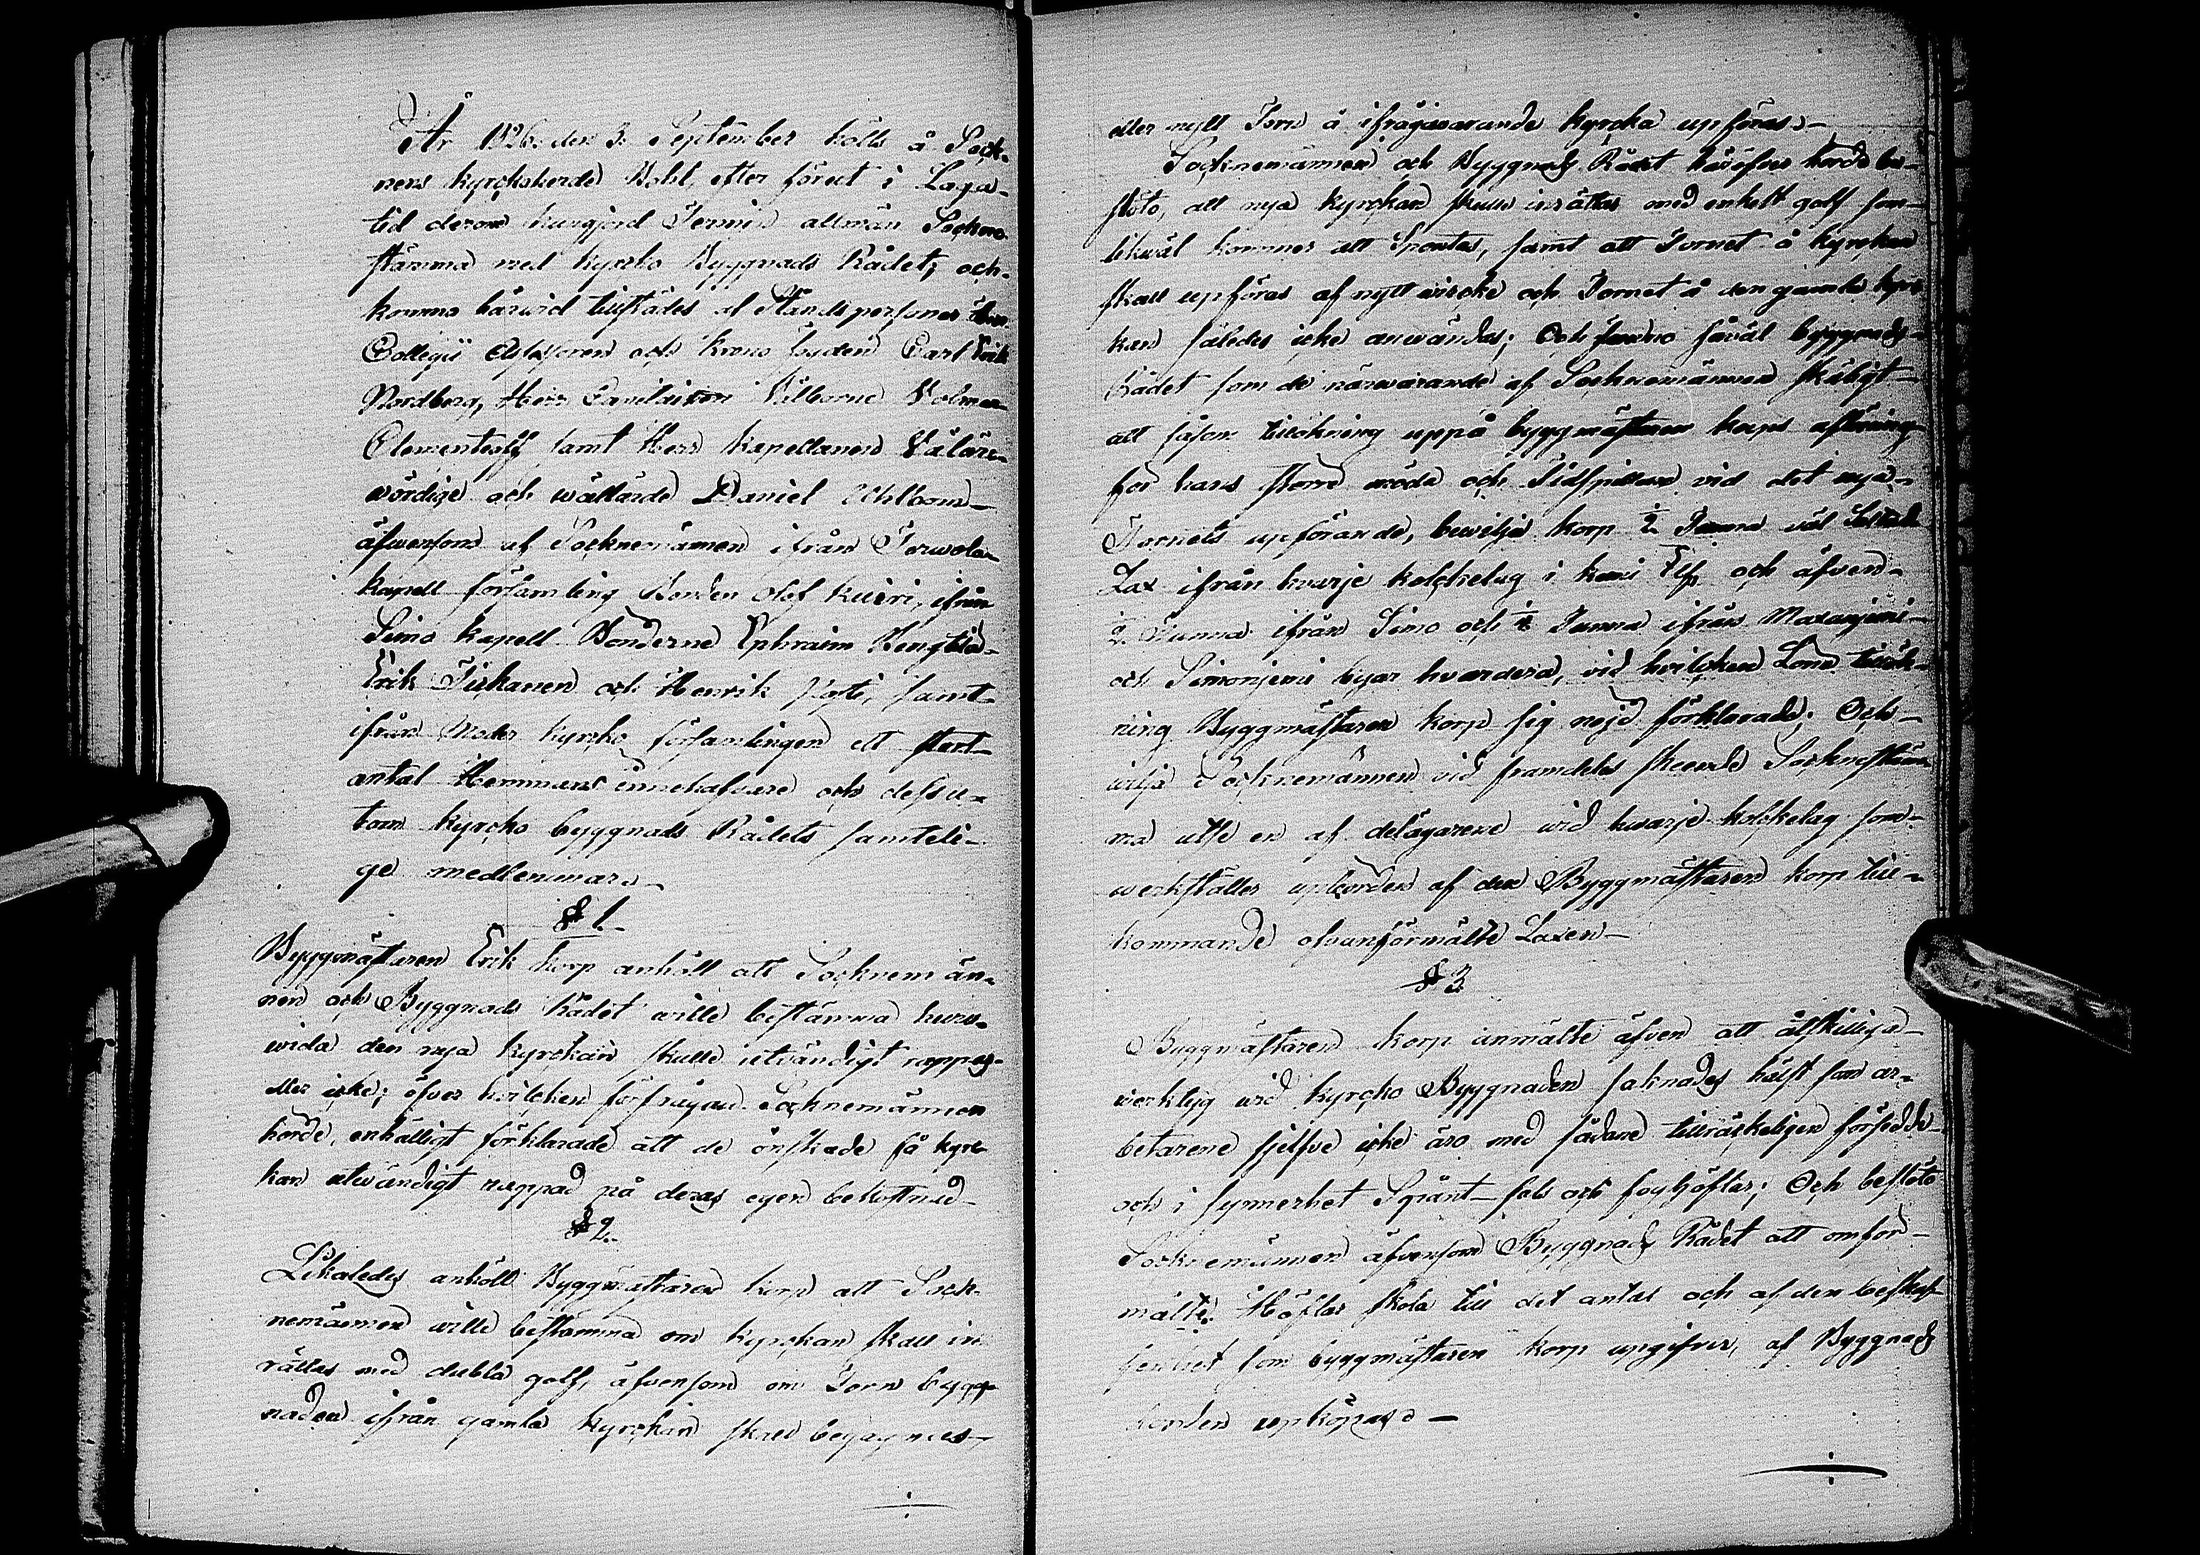 År 1826 den 3. September hölls å Sock-
nens Kyrckoherde Bohl, efter förut i Laga
tid derom kungjord Termin allmän Sockne
stämma med Kyrcko Byggnads Rådet; och
komme härwid tillstädes af Ståndspersoner Herr
Collegii Assessoren och Krono fogden Carl Erik
Nordberg, Herr Wälborne Volmar
Clementeoff samt Herr Kapellanen Wälära-
wördige och wällärde Daniel
äfwensom af Socknemännen ifrån Terwola
kapell församling Bonden Olof Kuiri, ifrån
Simo kapell Bönderne Ephraim
Erik Tiskanen och Henrik samt
ifrån Moder kyrcko församlingen ett stort
antal Hemmans innehafvare och dessu-
tom kyrcko byggnads Rådets samteli-
ge medlemmar.
§ 1.
Byggmästaren Erik Korp anhöll att Socknemän-
nen och Byggnads Rådet wille bestämma huru-
wida den nya kyrckan skulle utvändigt rappas
eller icke; öfver hvilcken förfrågan Socknemännen
hörde, enhälligt förklarade att de önskade få kyrc
kan utwändigt rappad på deras egen bekostnad
§ 2.
Likaledes anhöll Byggmästaren Korp att Sock-
nemännen wille bestämma om kyrckan skall in
rättas med dubla golf, äfvensom om Torn bygg-
naden ifrån gamla kyrckan skall begagnas
eller nytt Torn å ifrågavarande kyrcka upföras.
Socknemännen och Byggnads Rådet häröfver hörde be-
slöto, att nya kyrckan skulle inrättas med enkelt golf som
likwäl kommer att Spontas, samt att Tornet å kyrckan
skall upföras af nytt wircke och Tornet å den gamla kyrc
kan således icke anwändas; Och såwäl byggnads
Rådet som de närwarande af Socknemännen skäligt
att såsom tillökning uppå byggmästaren Korps aflöning
för hans större möda och Tidspillan vid det nya
Tornets upförande, bewilja Korp ½ Tunna väl Saltad
Lax ifrån hvarje kolckelag i Kemi Elf, och äfven
½ Tunna ifrån Simo och ¼ Tunna ifrån Maxaniemi
och Simoniemi byar hvardera, vid hvilcken Löne tillök-
ning Byggmästaren Korp sig nöjd förklarade; Och
wilja Socknemännen vid framdeles skeende Socknestäm
ma utse en af delägarene wid hwarje kolckelag som
werkställer upbörden af den Byggmästaren Korp till-
kommande ofvanförmälte Laxen
§ 3
Byggmästaren Korp anmälte äfven att åtskilliga
werktyg wid kyrcko Byggnaden saknades hälst som ar-
betarene sjelfve icke äro med sådane tillräckeligen försedde
och i synnerhet Spånt- fals och foghöflar; Och beslöto
Socknemännen äfvensom Byggnads Rådet att omför-
mälte Höflar skola till det antal och af den beskaf
fenhet som byggmästaren Korp upgifver, af Byggnads
upköpas